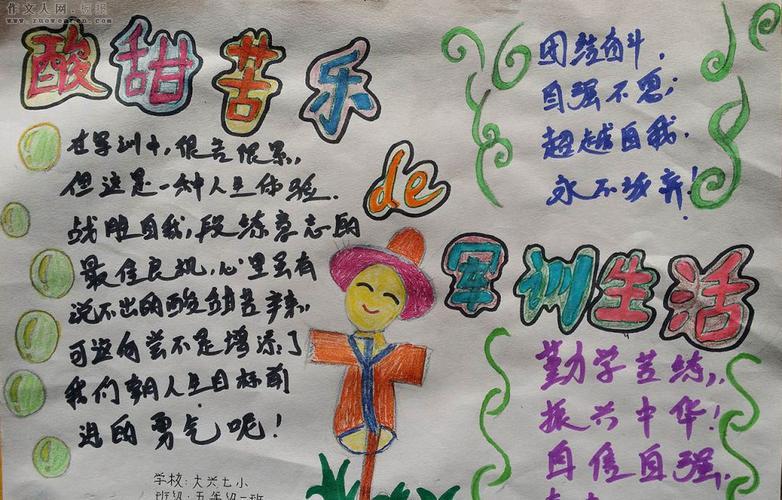 作文人网
酸甜苦乐
de
军训生活
在军训中,很苦很累,
但这是一种人生体验.
战胜自我,段练意志的
最佳良机.心里虽有
说不出的酸甜苦辣.
可这何尝不是增添了
我们朝人生目标前
进的勇气呢!
学校:大兴七小
班级:五年级一班
团结奋斗,
自强不息;
超越自我,
永不放弃!
勤学苦练,
振兴中华!
自信自强,